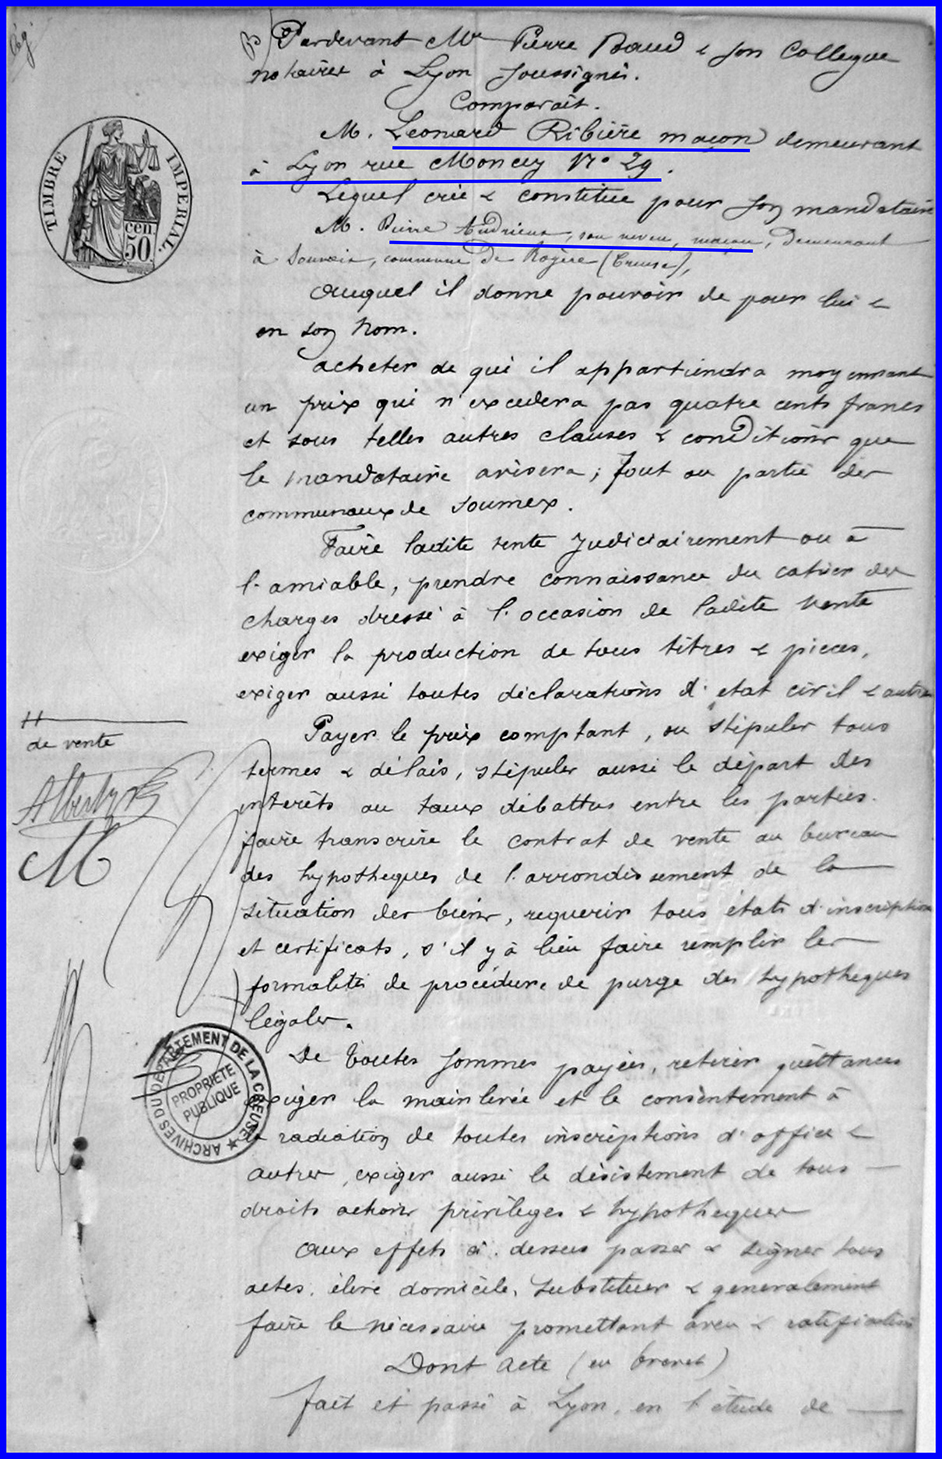 Pardevant Me Pierre Baud & son Collegue
notaires à Lyon soussignés.
Comparait.
M. Léonard Ribière maçon demeurant
à Lyon rue Moncey No 29.
Lequel crée & constitue pour son mandataire
M. Pierre Andrieux, son neveu, maçon, demeurant
à Souvoix, commune de Royère (Creuse),
auquel il donne pouvoir de pour lui &
en son nom.
acheter de qui il appartiendra moyennant
un prix qui n'excedera pas quatre cents francs
et sous telles autres clauses & conditions que
le mandataire avisera ; tout ou partie des
communaux de Soumex.
Faire ladite vente judiciairement ou à
l'amiable, prendre connaissance du cahier des
charges dressé à l'occasion de ladite vente
exiger la production de tous titres & pieces,
exiger aussi toutes déclarations d'état civil & autres
Payer le prix comptant, ou stipuler tous
termes & délais, stipuler aussi le départ des
interêts au taux débattus entre les parties.
faire transcrire le contrat de vente au bureau
des hypotheques de l'arrondissement de la
situation des biens, requerir tous états d'inscription
et certificats, s'il y à lieu faire remplir les
formalités de procédure de purge des hypotheques
légales.
De toutes sommes payées, retirer quittances
exiger la mainlevée et le consentement à
la radiation de toutes inscriptions d'office &
autres, exiger aussi le désistement de tous
droits actions privileges & hypotheques
aux effets ci dessus passer & signer tous
actes, élire domicile, substituer & generalement
faire le nécessaire promettant aveu & ratification
Dont acte (en brevet)
fait et passé à Lyon, en l'étude de
TIMBRE IMPERIAL
50 cen.
de vente
M
ARCHIVES DU DEPARTEMENT DE LA CREUSE
PROPRIETE
PUBLIQUE